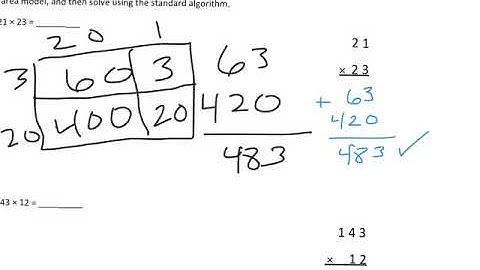 area model, and then solve using the standard algorithm.
21 × 23 = ________
20 1
3 60 3 63
20 400 20 420
483
21
× 23
+ 63
420
483 ✓
43 × 12 = ________
143
× 12